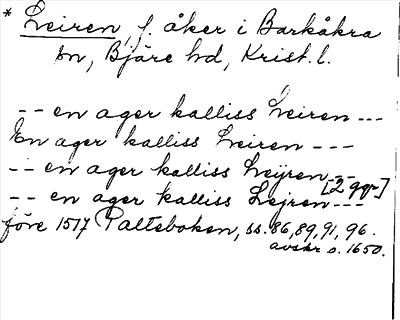 * Leiren, f. åker i Barkåkra
sn, Bjäre hd, Krist. l.
-- en ager kalliss Leiren ---
En ager kalliss Leiren ---
-- en ager kalliss Leÿren -- [2 ggr]
-- en ager kalliss Lejren ---
före 1517 Palteboken, ss. 86, 89, 91, 96.
avskr o. 1650.